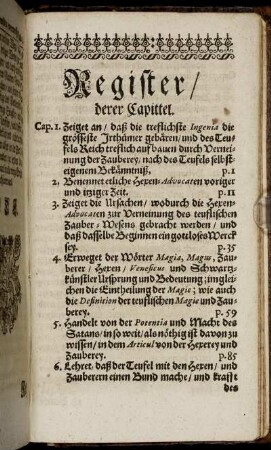 Register/
derer Capittel.
Cap. 1. Zeiget an/ daß die treflichste Ingenia die
grösseste Irthümer gebären/ und des Teu-
fels Reich treflich auf bauen durch Vernei-
nung der Zauberey/ nach des Teufels selbst
eigenem Bekänntniß/ p. 1
2. Benennet etliche Hexen-Advocaten voriger
und itziger Zeit. p. 11
3. Zeiget die Ursachen/ wodurch die Hexen-
Advocaten zur Verneinung des teuflischen
Zauber-Wesens gebracht werden/ und
daß dasselbe Beginnen ein gottloses Werck
sey. p. 35
4. Erweget der Wörter Magia, Magus, Zau-
berer/ Hexen/ Veneficus und Schwartz-
künstler Ursprung und Bedeutung; inglei-
chen die Eintheilung der Magie; wie auch
die Definition der teuflischen Magie und Zau-
berey. p. 59
5. Handelt von der Potentia und Macht des
Satans/ in so weit/ als nöthig ist davon zu
wissen/ in dem Articul von der Hexerey und
Zauberey. p. 85
6. Lehret/ daß der Teufel mit den Hexen/ und
Zauberern einen Bund mache/ und krafft
des